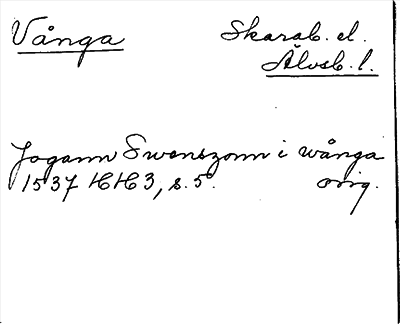 Vånga
Skarab. el.
Älvsb. l.
Jogann Swenszonn i wånga
1537 HH3, s. 5. orig.